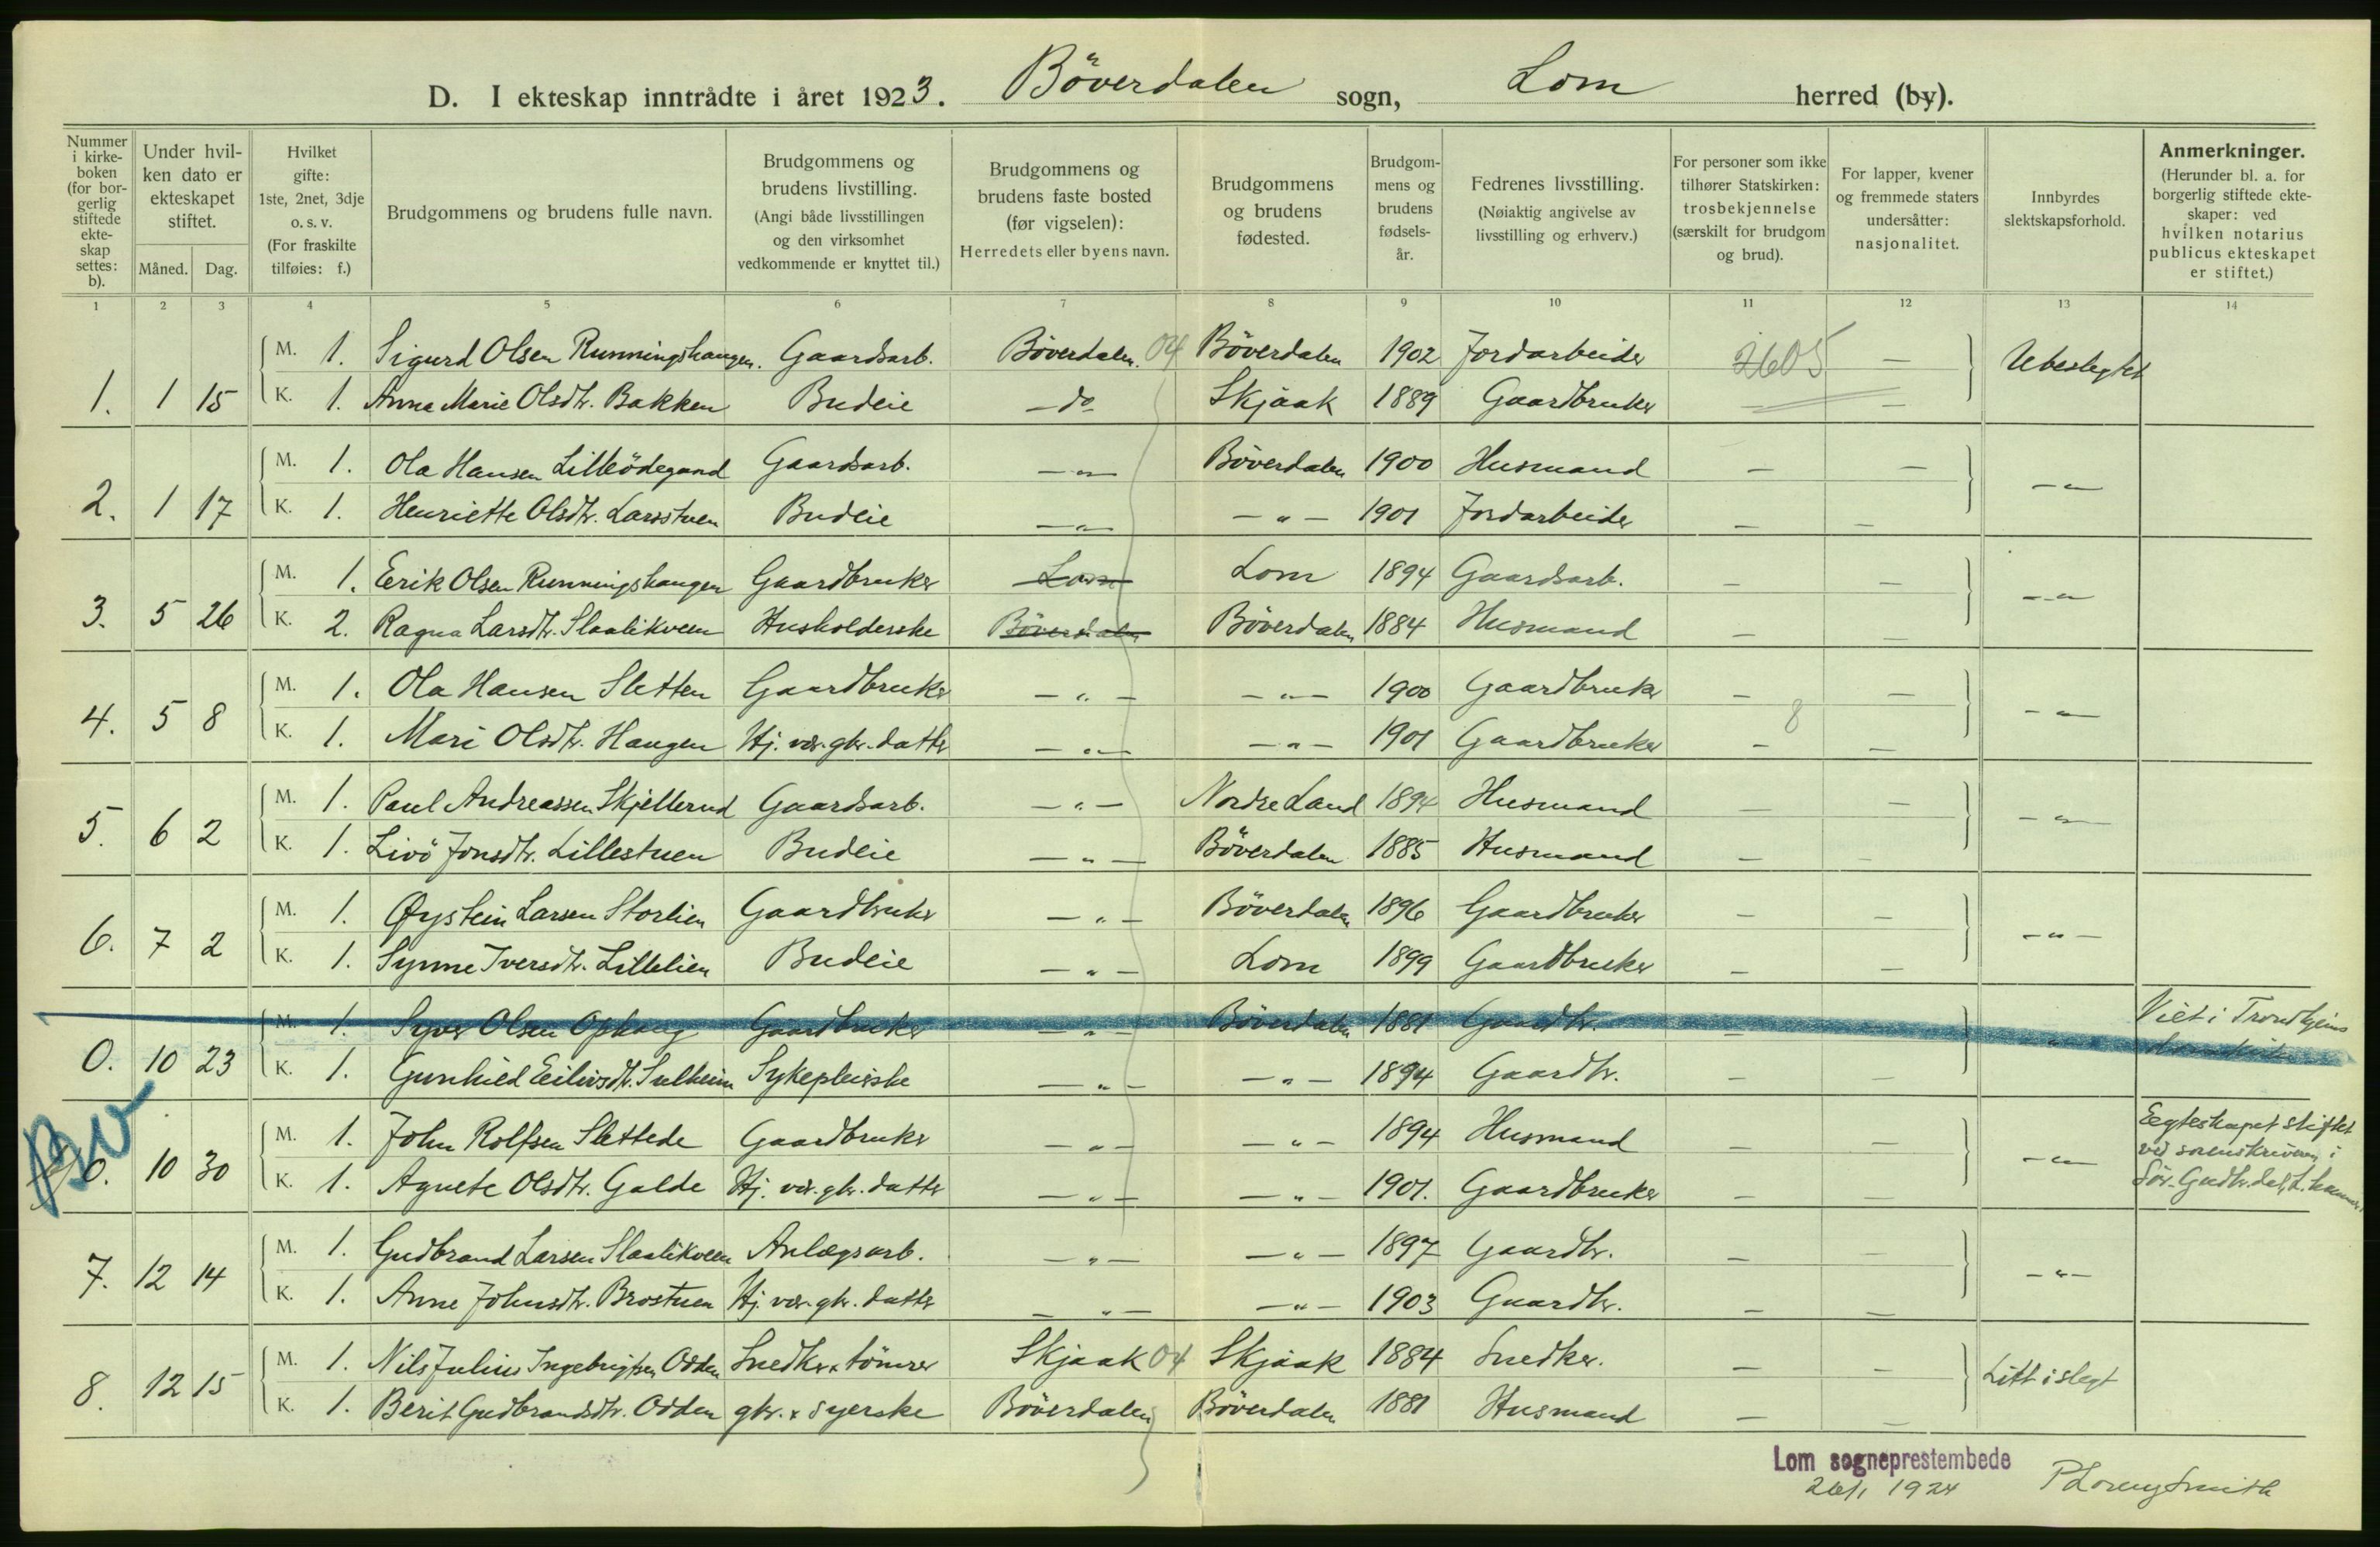 D. I ekteskap inntrådte i året 1923. Böverdalen sogn, Lom herred (by).
Nummer i kirke-boken (for bor-gerlig stiftede ekte-skap settes: b).
Under hvil-ken dato er ekteskapet stiftet.
Måned. Dag.
Hvilket gifte: 1ste, 2net, 3dje o. s. v. (For fraskilte tilføies: f.)
Brudgommens og brudens fulle navn.
Brudgommens og brudens livstilling. (Angi både livsstillingen og den virksomhet vedkommende er knyttet til.)
Brudgommens og brudens faste bosted (før vigselen): Herredets eller byens navn.
Brudgommens og brudens fødested.
Brudgom-mens og brudens fødsels-år.
Fedrenes livsstilling. (Nøiaktig angivelse av livsstilling og erhverv.)
For personer som ikke tilhører Statskirken: trosbekjennelse (særskilt for brudgom og brud).
For lapper, kvener og fremmede staters undersåtter: nasjonalitet.
Innbyrdes slektskapsforhold.
Anmerkninger. (Herunder bl. a. for borgerlig stiftede ekte-skaper: ved hvilken notarius publicus ekteskapet er stiftet.)
1 2 3 4 5 6 7 8 9 10 11 12 13 14
M. 1. Sigurd Olsen Runningshaugen. Gaardsarb. Böverdalen. 04 Böverdalen 1902 Jordarbeider 2605 — Ubeslegtet
1. 1 15 K. 1. Anne Marie Olsdtr. Bakken Budeie — do Skjåak 1889 Gaardbruker — —
M. 1. Ola Hansen Lilleödegaard Gaardsarb. — " — Böverdalen 1900 Husmand — — — " —
2. 1 17 K. 1. Henriette Olsdtr. Larsstuen Budeie — " — — " — 1901 Jordarbeider — —
M. 1. Erik Olsen Runningshaugen Gaardbruker Lom Lom 1894 Gaardsarb. — — — " —
3. 5 26 K. 2. Ragna Larsdtr. Slaalikveen Husholderske Böverdalen Böverdalen 1884 Husmand — —
M. 1. Ola Hansen Sletten Gaardbruker — " — — " — 1900 Gaardbruker — — — " —
4. 5 8 K. 1. Mari Olsdtr. Haugen Hj. vær. gbr. datter — " — — " — 1901 Gaardbruker — 8 —
M. 1. Paul Andreassen Skjellerud Gaardsarb. — " — Nordre Land 1894 Husmand — — — " —
5. 6 2 K. 1. Livö Jonsdtr. Lillestuen Budeie — " — Böverdalen 1885 Husmand — —
M. 1. Øystein Larsen Storlien Gaardbruker — " — Böverdalen 1896 Gaardbruker — — — " —
6. 7 2 K. 1. Synne Iversdtr. Lillelien Budeie — " — Lom 1899 Gaardbruker — —
M. 1. Syver Olsen Ophaug Gaardbruker — " — Böverdalen 1881 Gaardbr. — " Viet i Trondhjems
domkirke
0. 10 23 K. 1. Gunhild Eilivsdtr. Sulheim Sykepleierske — " — — " — 1894 Gaardbr. — —
M. 1. John Rolfsen Slettede Gaardbruker — " — — " — 1894 Husmand — — — " — Egteskapet stiftet
ved sorenskriveren i
0. 10 30 K. 1. Agnete Olsdtr. Galde Hj. vær. gbr. datter — " — — " — 1901. Gaardbruker — — Sör-Gudbr.dal, L.hammer.
M. 1. Gudbrand Larsen Slaalikveen Anlægsarb. — " — — " — 1897 Gaardbr. — — — " —
7. 12 14 K. 1. Anne Johnsdtr. Brostuen Hj. vær. gbr. datter — " — — " — 1903 Gaardbr. — —
M. 1. Nils Julius Ingebrigtsen Odden Snedker & tömrer Skjaak 04 Skjåak 1884 Snedker. — — Litt i slegt
8. 12 15 K. 1. Berit Gudbrandsdtr. Odden gbr. & syerske Böverdalen Böverdalen 1881 Husmand — —
Lom sogneprestembede
26/1 1924 P Lorenz Smith